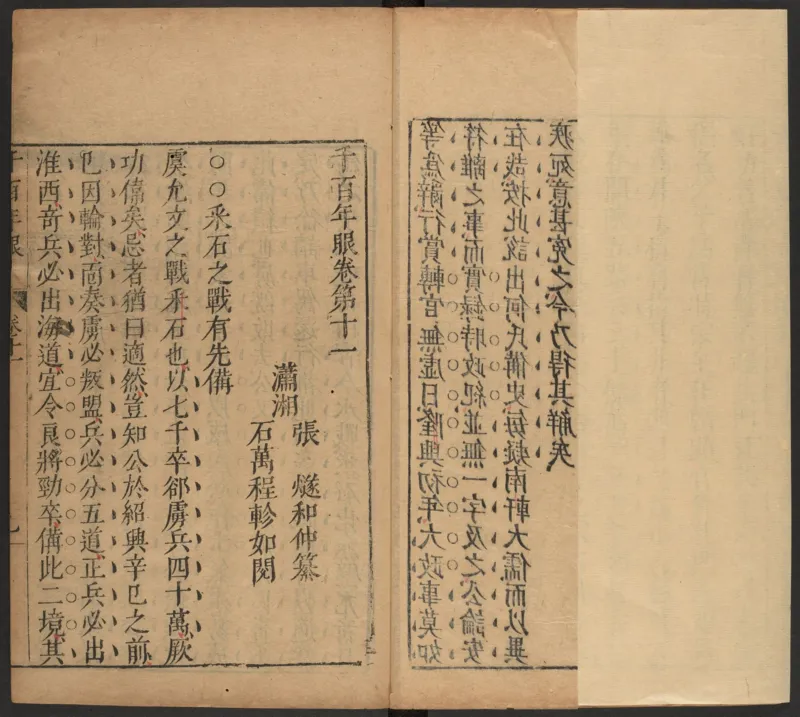 等爲辭行賞轉官無虛日隆興初年大政事莫如
符離之事而實錄時政紀並無一字及之公論安
在哉按此說出何氏備史每疑南軒大儒而以異
疾死意甚冤之今乃得其解矣
千百年眼卷第十一
瀟湘
張 燧和仲纂
石萬程軫如閱
○○采石之戰有先備
虞允文之戰采石也以七千卒郤虜兵四十萬厥
功偉矣忌者猶曰適然豈知公於紹興辛巳之前
已因輪對面奏虜必叛盟兵必分五道正兵必出
淮西奇兵必出海道宜令良將勁卒備此二境其
千百年眼 卷十一